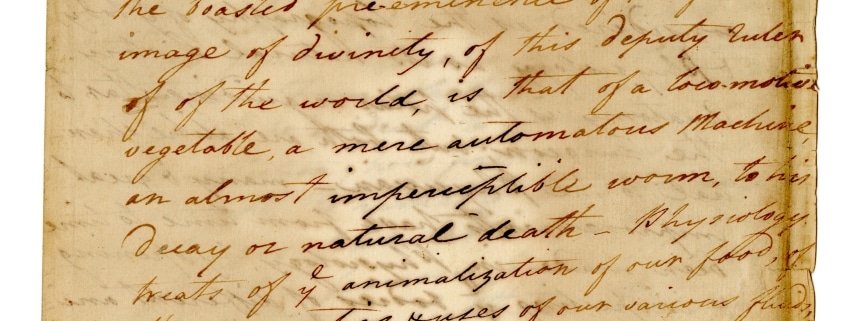 the boasted pre-eminence of
image of divinity, of this deputy ruler
of of the world, is that of a loco-motive
vegetable, a mere automatous Machine,
an almost imperceptible worm, to his
Decay or natural death – Physiology
treats of ye animalization of our food, of
uses of our various fluids,